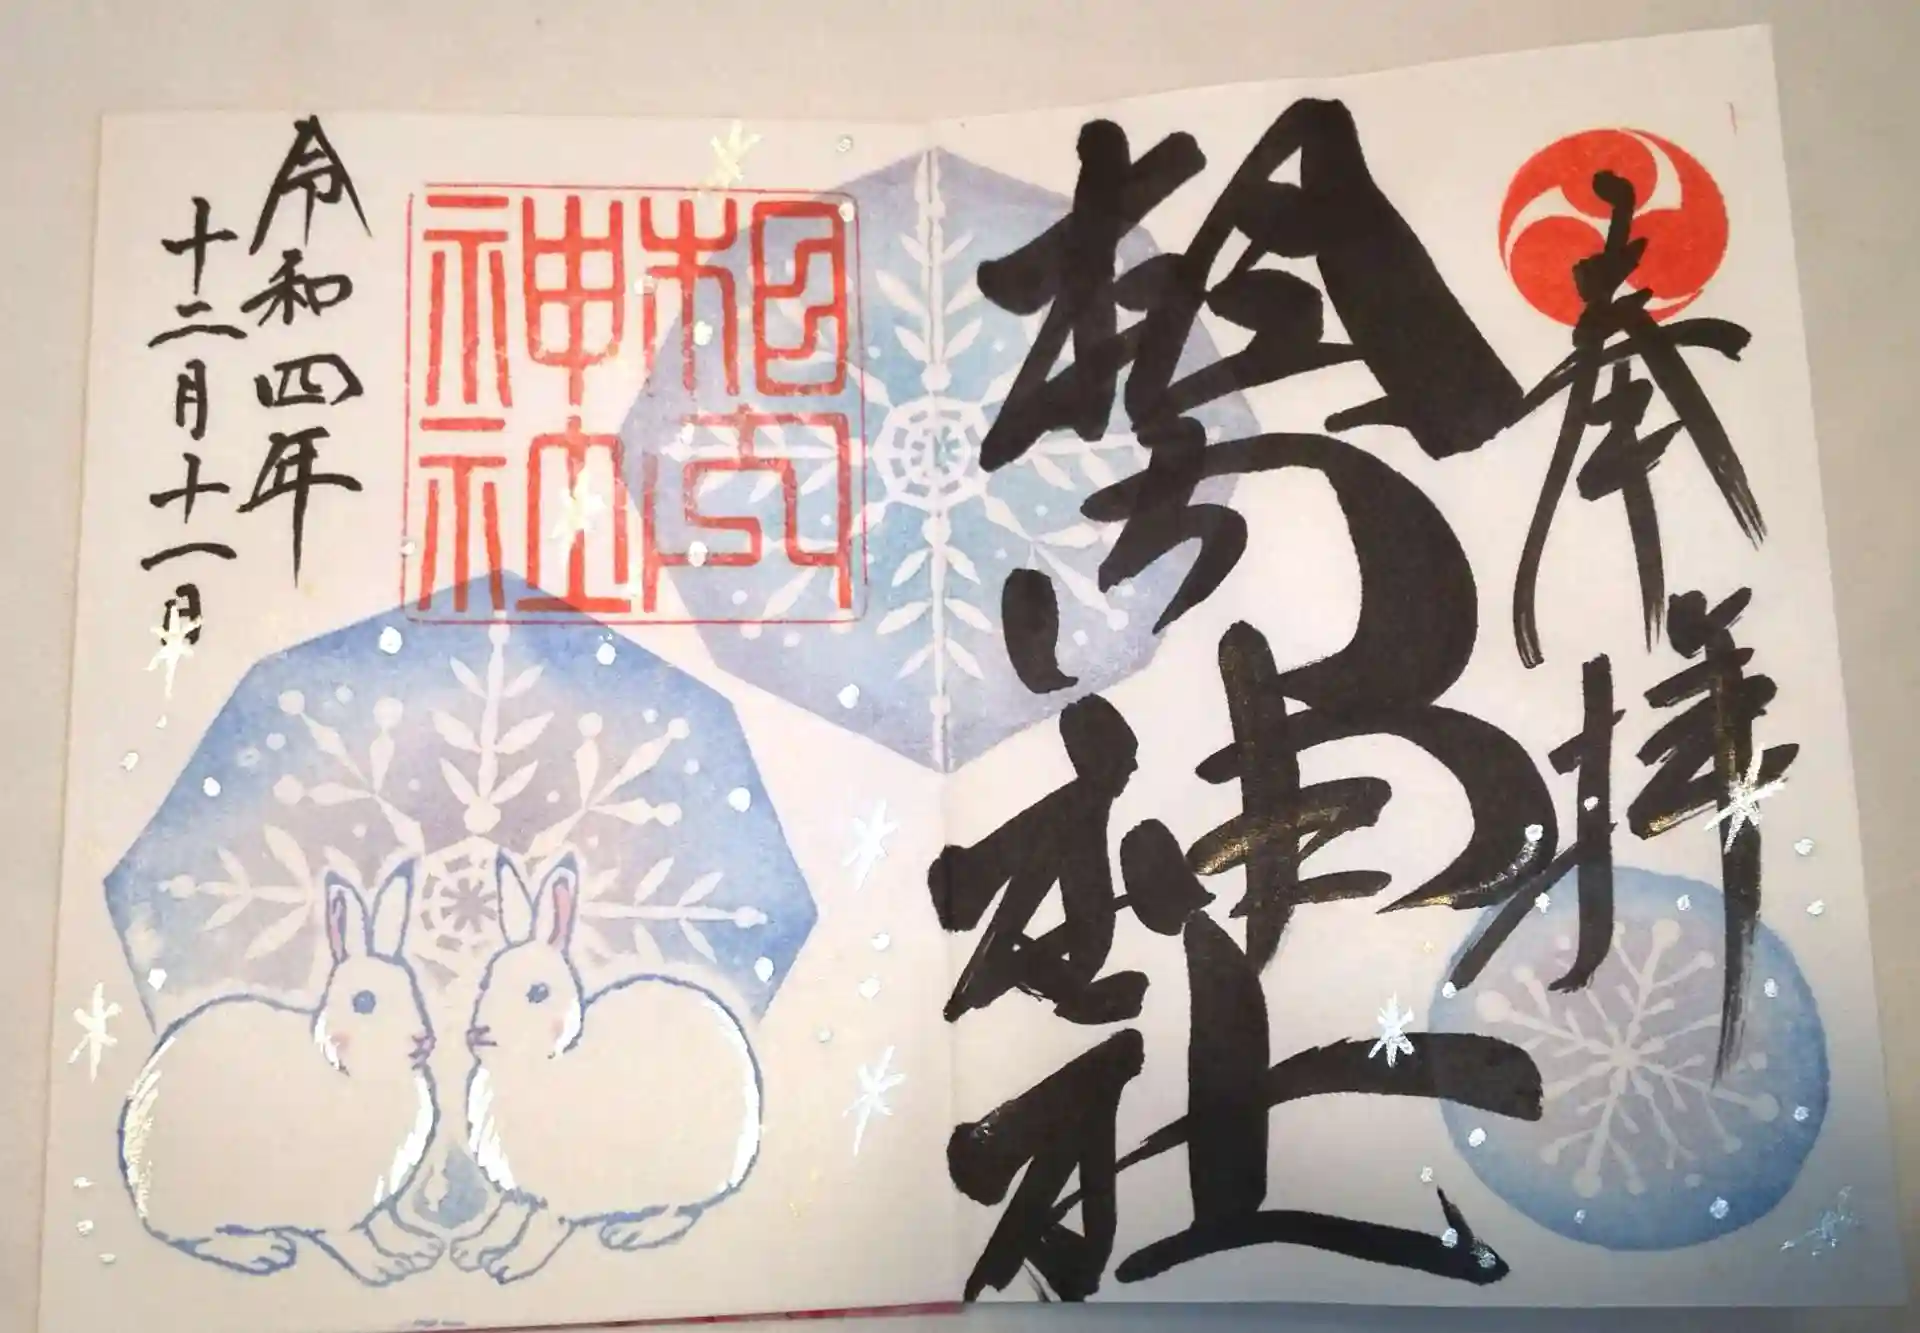 奉拝
相内神社
相内
神社
令和四年
十二月十一日